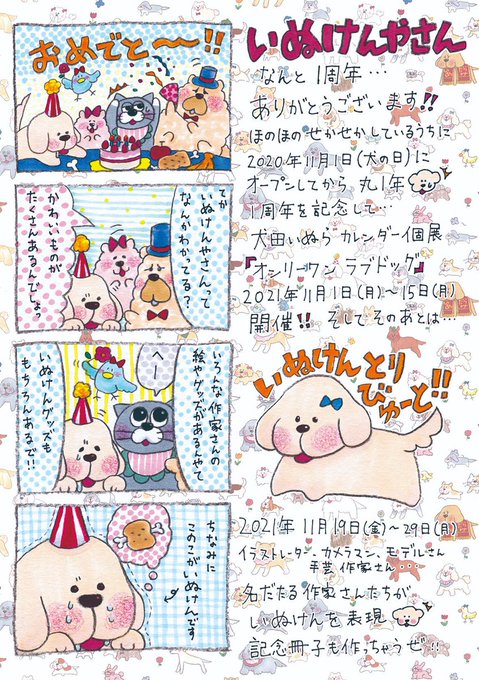 おめでと〜!!
てか
いぬけんやさんって
なんかわかってる?
かわいいものが
たくさんあるんでしょっ
いろんな作家さんの
絵やグッズがあるんやて
へー
いぬけんグッズも
もちろんあるで!!
ちなみに
このこがいぬけんです
いぬけんやさん
なんと1周年…
ありがとうございます!!
ほのほのせかせかしているうちに
2020年11月1日(犬の日)に
オープンしてから丸1年
1周年を記念して…
犬田いぬら カレンダー個展
『オンリーワン ラブドッグ』
2021年11月1日(月)〜15日(月)
開催!! そして そのあとは…
いぬけんとり
びゅーと!!
2021年 11月19日(金)〜29日(月)
イラストレーター・カメラマン、モデルさん
手芸作家さん…
名だたる作家さんたちが
いぬけんを表現
記念冊子も作っちゃうぜ!!